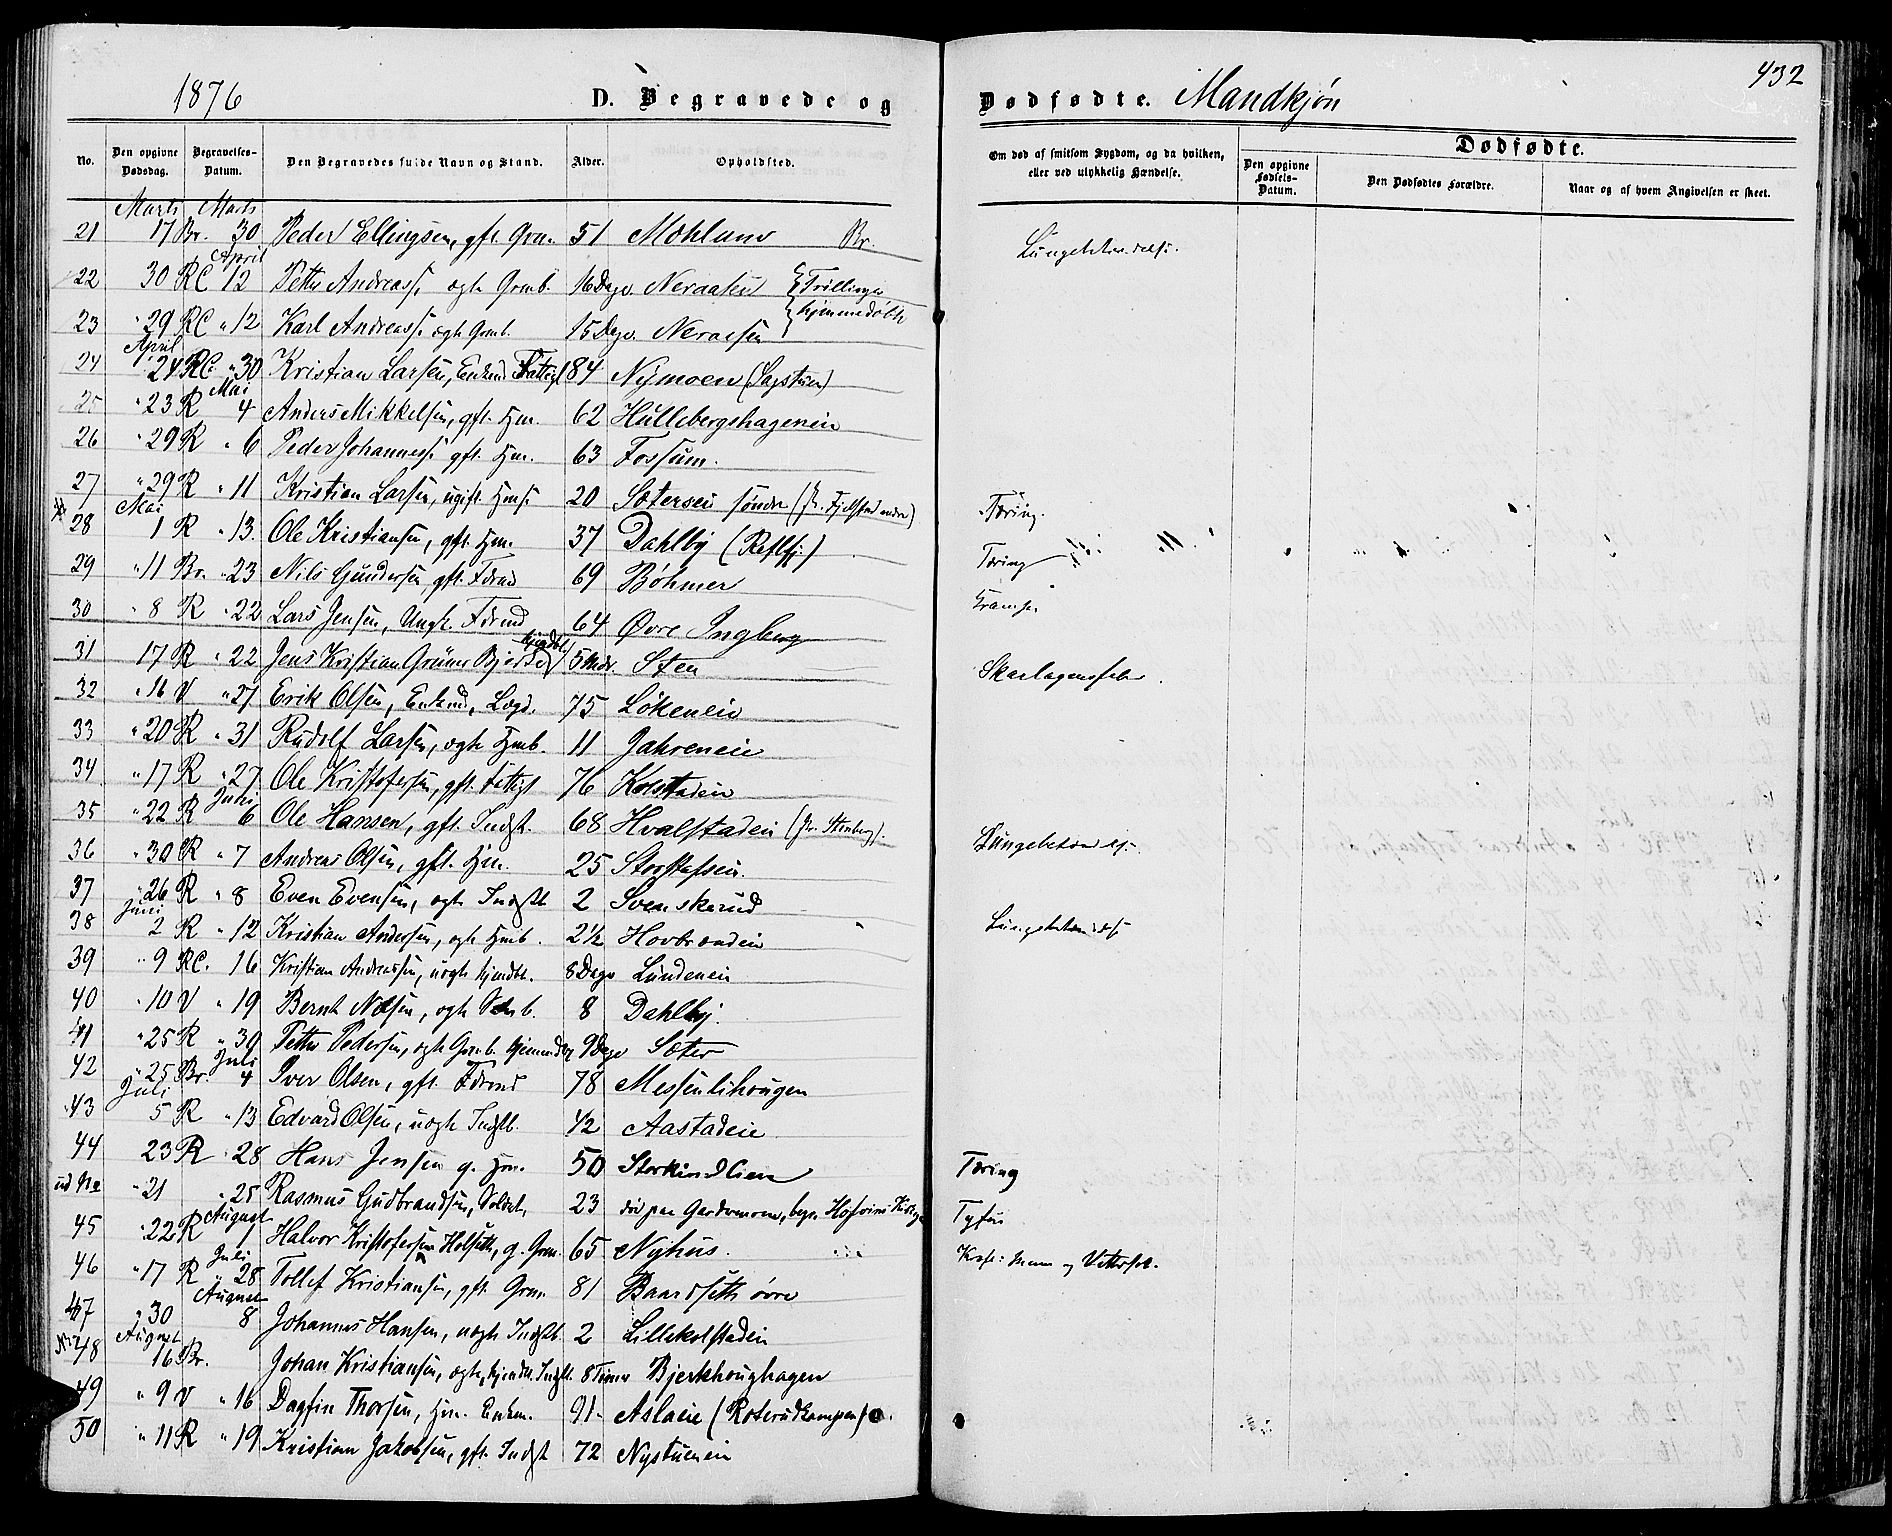 1876
D. Begravede og
No. Den opgivne Dødsdag. Begravelses-Datum. Den Begravedes fulde Navn og Stand. Alder. Opholdsted.
Marts Marts
21 17 Br. 30 Peder Ellingsen, gft. Grm. 51 Mohlund Br.
April
22 30 RC 12 Petter Andreass. ægte Grmb. 16 Dage. Neraasen Trillinger
23 " 29 RC " 12 Karl Andreass. ægte Grmb. 15 Dage. Neraasen hjemmedøbte
April
24 " 24 RC " 30 Kristian Larsen, Enkmd Fattigl 84 Nymoen (Sagstuen)
Mai
25 " 23 R 4 Anders Mikkelsen, gft. Hm. 62 Hullebergshageneie
26 " 29 R " 6 Peder Johanness. gft. Hm. 63 Fossum.
27 " 29 R " 11 Kristian Larsen, ugift. Hms. 20 Sætereie søndre (fr. Fjelstad nedre)
Mai
28 1 R " 13. Ole Kristiansen, gft. Hm. 37 Dahlby
29 " 11 Br. " 23 Nils Gundersen, gft. Fdrmd 69 Bøhmer
30 " 8 R " 22 Lars Jensen, Ungk. Fdrmd 64 Øvre Ingberg
hjmdbt
31 17 R " 22 Jens Kristian Grüner Bjerke 5 Mdr. Sten
32 " 16 V " 27 Erik Olsen, Enkmd, Lægd. 75 Løkeneie
33 " 20 R " 31 Rudolf Larsen, ægte Hmb. 11 Jahreneie
34 " 17 R " 27 Ole Kristofersen, gft. fattigl 76 Kolstadeie
Juni
35 " 22 R 6 Ole Hansen, gft. Indst. 68 Hvalstadeie (fr. Stenberg).
36 " 30 R " 7 Andreas Olsen, gft. Hm. 25 Storstafseie.
37 " 26 R " 8 Even Evensen, ægte Indstb 2 Svenskerud
Juni
38 2 R " 12 Kristian Andersen, ægte Hmb. 2½ Hovbrændeie
39 " 9 RC. 16 Kristian Andreassen, uægte hjemdbt. 8 Dage Lundeneie
40 " 10 V " 19 Bernt Nilsen, ægte 8 Dahlby.
41 " 25 R " 30 Petter Pedersen, ægte Grmb. hjemmedbt 9 Dage Sæter
Juli
42 " 25 Br. 4 Iver Olsen, gft. Fdrmd 78 Messenlihougen
Juli
43 5 R " 13 Edvard Olsen, uægte Indstb. ½ Aastadeie
44 23 R " 28 Hans Jensen g. Hm. 50 Storkindlien
ud No " 21 " 25 Rasmus Gudbrandsen, Soldat, 23 død paa Gardermoen, begr. Hofvins Kirkeg.
August
45 " 22 R 1 Halvor Kristofersen Holseth, g. Grm. 65 Nyhus.
Juli
46 " 17 R " 28 Tollef Kristiansen, gft. Grm. 81 Baardseth øvre
August
47 " 30 8 Johannes Hansen, uægte Indstb. 2 Lillekolstadeie
August
48 16 Br. Johan Kristiansen, ægte, hjemdbt Indstb. 8 Timer Bjerkhoughagen
49 " 9 V " 16 Dagfin Thorsen, Hm. Enkem. 91. Aslaeie (Roterudkampen)
50 " 11 R " 19 Kristian Jakobsen, gft. Indst 72 Nystueneie
432
Dødfødte. Mandkjøn
Om død af smitsom Sygdom, og da hvilken, eller ved ulykkelig Hændelse.
Dødfødte.
Den opgivne Fødsels-Datum. Den Dødfødtes Forældre. Naar og af hvem Angivelsen er skeet.
Lungebetændelse.
Tæring.
Tæring
Krampe
Skarlagensfeber.
Lungebetændelse.
Lungebetændelse
Tæring
Tyfus